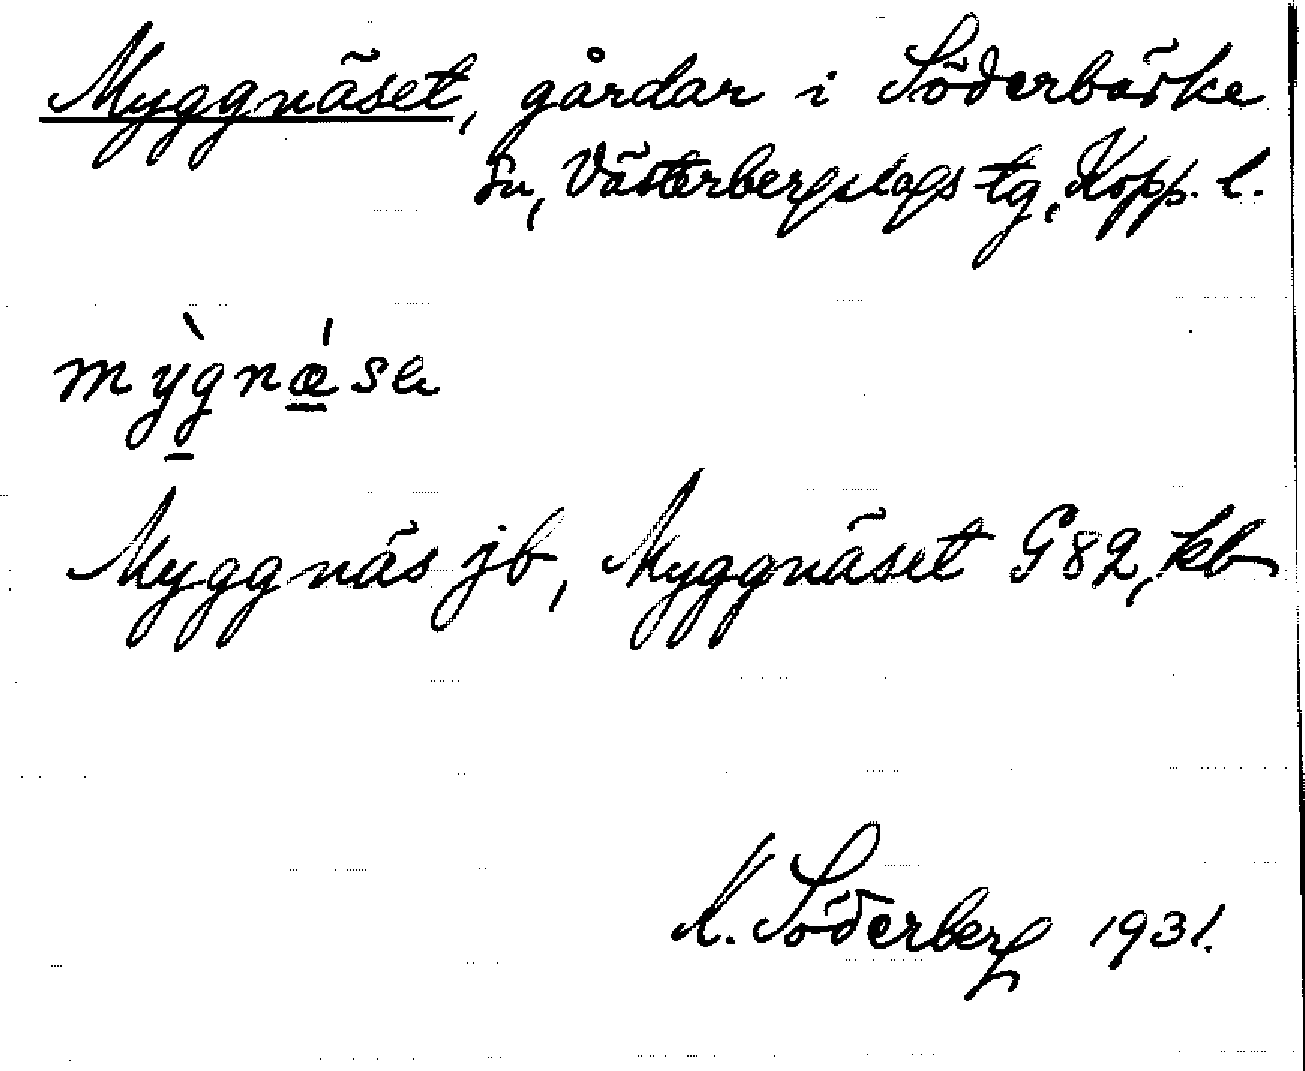 Myggnäset, gårdar i Söderbärke
sn, Västerbergslags tg, Kopp. l.
mỳgnǽse
Myggnäs jb, Myggnäset G82, kb
K. Söderberg 1931.